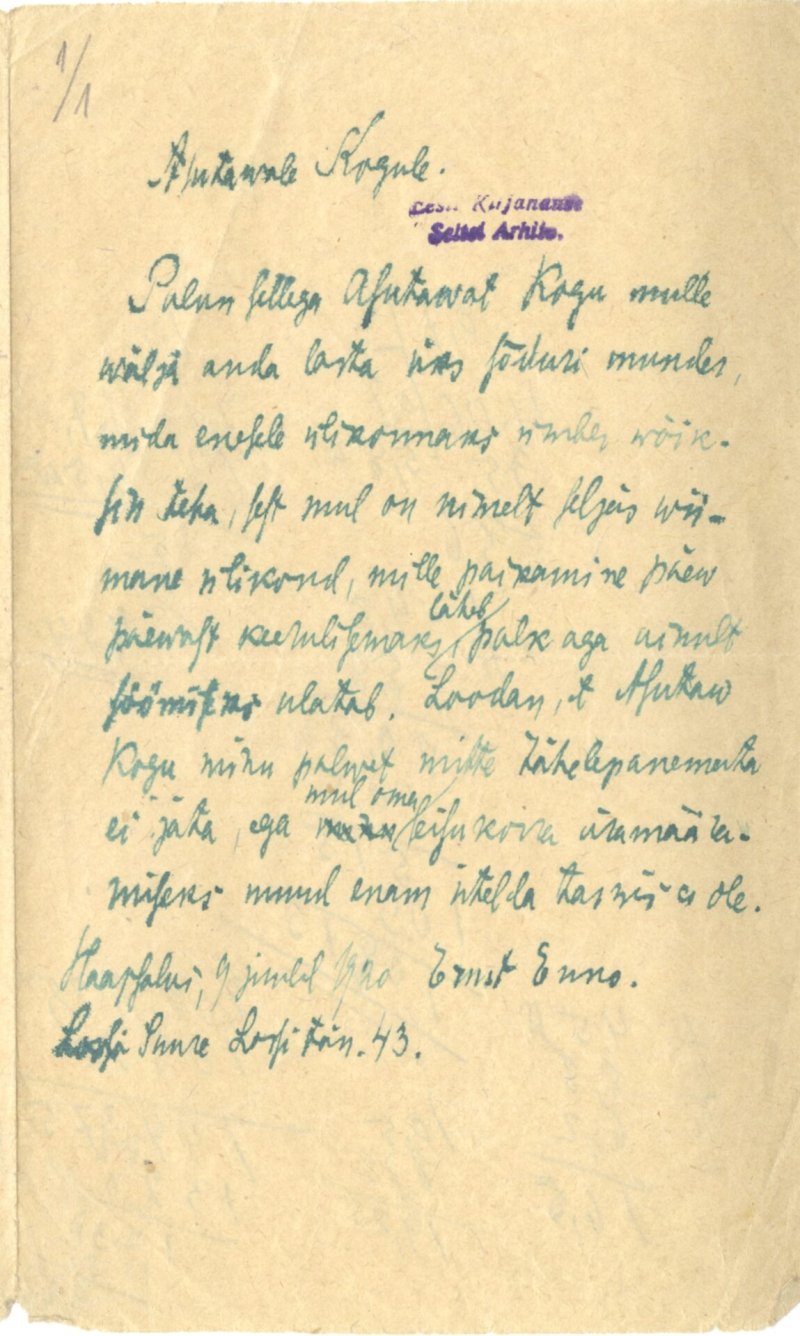 1/1
Asutawale Kogule.
Eesti Kirjanduse
Seltsi Arhiiv.
Palun sellega Asutawat Kogu mulle
wälja anda lasta üks sõduri munder,
mida enesele ülikonnaks ümber wõik-
sin teha, sest mul on nimelt seljas wii-
mane ülikond, mille paikamine päew
päewast keerulisemaks läheb, palk aga ainult
söömiseks ulatab. Loodan, et Asutaw
Kogu minu palwet mitte tähelepanemata
ei jäta, ega mul oma seisukorra äramäära-
miseks muud enam ütelda tarwis ei ole.
Haapsalus, 9 juulil 1920 Ernst Enno.
Suure Lossi tän. 43.